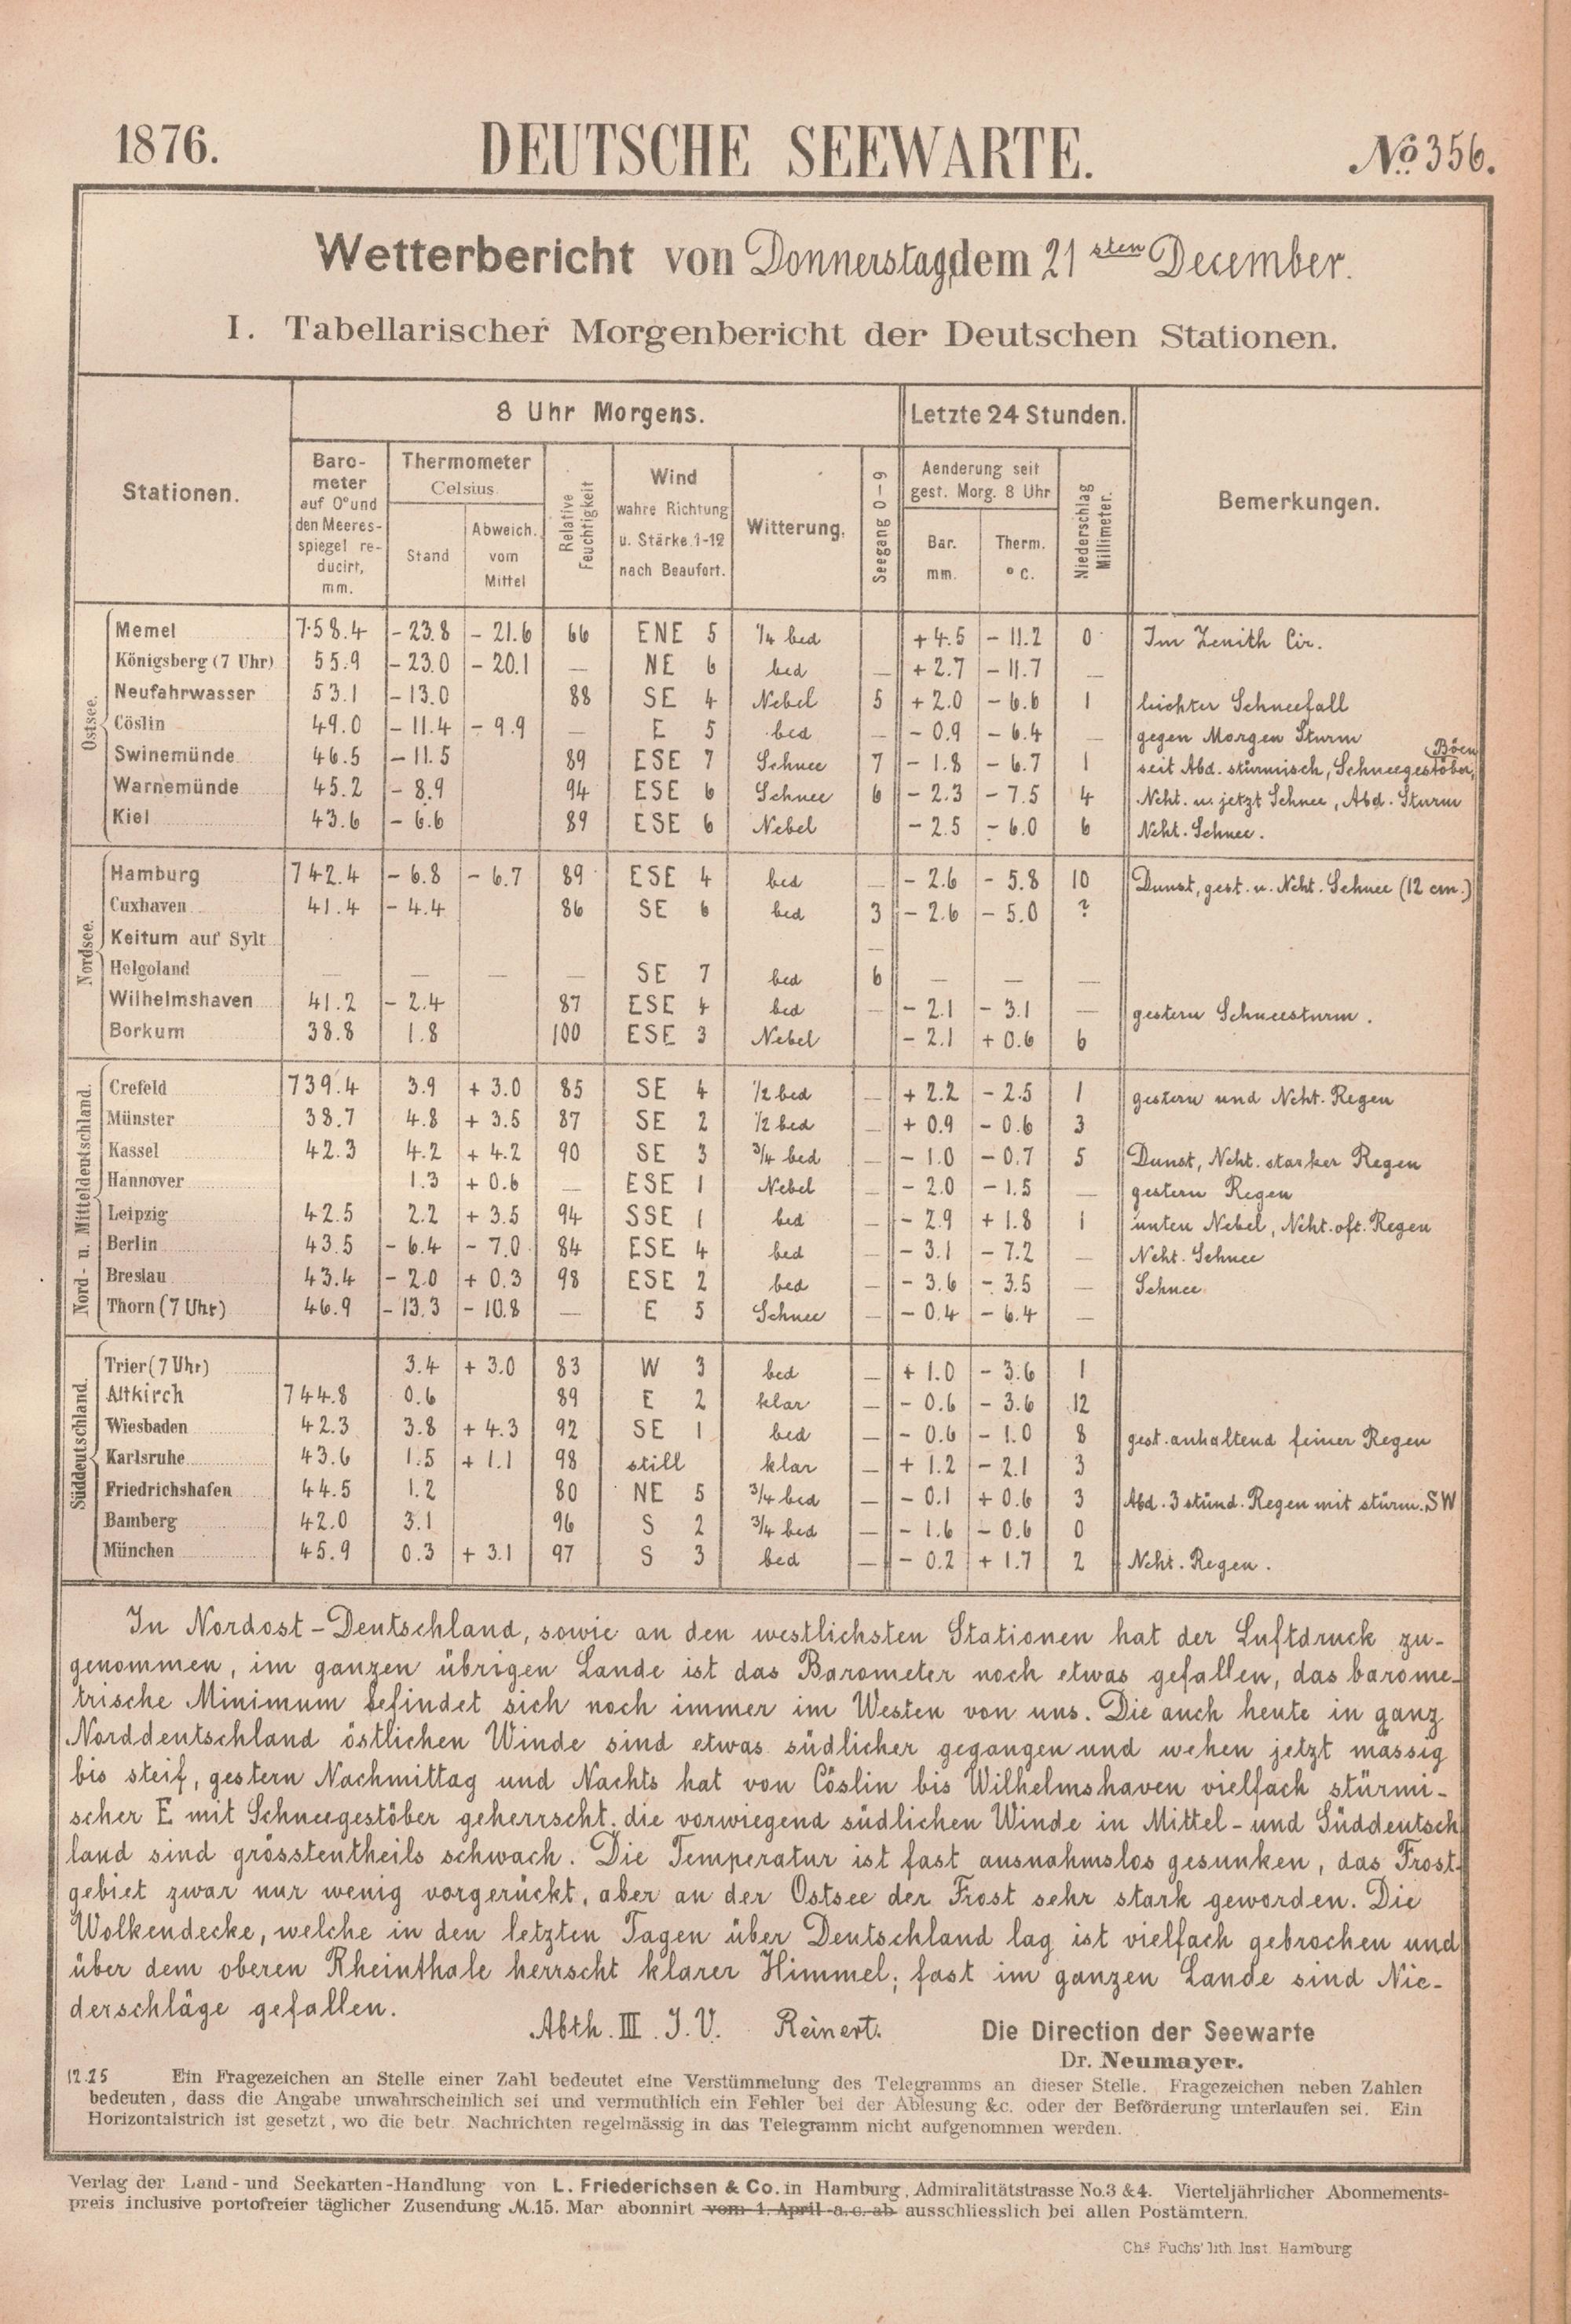 1876. DEUTSCHE SEEWARTE. No. 356.
Wetterbericht von Donnerstag, dem 21sten December.
I. Tabellarischer Morgenbericht der Deutschen Stationen.
Stationen. 8 Uhr Morgens. Letzte 24 Stunden. Bemerkungen.
Barometer auf 0° und den Meeresspiegel reducirt, mm. Thermometer Celsius. Stand Abweich. vom Mittel Relative Feuchtigkeit Wind wahre Richtung u. Stärke 1-12 nach Beaufort. Witterung. Seegang 0-9 Aenderung seit gest. Morg. 8 Uhr Bar. mm. Therm. °C. Niederschlag Millimeter.
Ostsee.
Memel 758.4 - 23.8 - 21.6 66 ENE 5 1/4 bed + 4.5 - 11.2 0 Im Zenith Cir.
Königsberg (7 Uhr) 55.9 - 23.0 - 20.1 — NE 6 bed — + 2.7 - 11.7 —
Neufahrwasser 53.1 - 13.0 88 SE 4 Nebel 5 + 2.0 - 6.6 1 leichter Schneefall
Cöslin 49.0 - 11.4 - 9.9 — E 5 bed — - 0.9 - 6.4 — gegen Morgen Sturm
Swinemünde 46.5 - 11.5 89 ESE 7 Schnee 7 - 1.8 - 6.7 1 seit Abd. stürmisch, Schneegestöber, Böen
Warnemünde 45.2 - 8.9 94 ESE 6 Schnee 6 - 2.3 - 7.5 4 Ncht. u. jetzt Schnee, Abd. Sturm
Kiel 43.6 - 6.6 89 ESE 6 Nebel - 2.5 - 6.0 6 Ncht. Schnee.
Nordsee.
Hamburg 742.4 - 6.8 - 6.7 89 ESE 4 bed — - 2.6 - 5.8 10 Dunst, gest. u. Ncht. Schnee (12 cm.)
Cuxhaven 41.4 - 4.4 86 SE 6 bed 3 - 2.6 - 5.0 ?
Keitum auf Sylt —
Helgoland — — — — SE 7 bed 6 — — —
Wilhelmshaven 41.2 - 2.4 87 ESE 4 bed — - 2.1 - 3.1 — gestern Schneesturm.
Borkum 38.8 1.8 100 ESE 3 Nebel - 2.1 + 0.6 6
Nord- u. Mitteldeutschland.
Crefeld 739.4 3.9 + 3.0 85 SE 4 1/2 bed — + 2.2 - 2.5 1 gestern und Ncht. Regen
Münster 38.7 4.8 + 3.5 87 SE 2 1/2 bed — + 0.9 - 0.6 3
Kassel 42.3 4.2 + 4.2 90 SE 3 3/4 bed — - 1.0 - 0.7 5 Dunst, Ncht. starker Regen
Hannover 1.3 + 0.6 — ESE 1 Nebel — - 2.0 - 1.5 — gestern Regen
Leipzig 42.5 2.2 + 3.5 94 SSE 1 bed — - 2.9 + 1.8 1 unten Nebel, Ncht. oft. Regen
Berlin 43.5 - 6.4 - 7.0 84 ESE 4 bed — - 3.1 - 7.2 — Ncht. Schnee
Breslau 43.4 - 2.0 + 0.3 98 ESE 2 bed — - 3.6 - 3.5 — Schnee
Thorn (7 Uhr) 46.9 - 13.3 - 10.8 — E 5 Schnee — - 0.4 - 6.4 —
Süddeutschland.
Trier (7 Uhr) 3.4 + 3.0 83 W 3 bed — + 1.0 - 3.6 1
Altkirch 744.8 0.6 89 E 2 klar — - 0.6 - 3.6 12
Wiesbaden 42.3 3.8 + 4.3 92 SE 1 bed — - 0.6 - 1.0 8 gest. anhaltend feiner Regen
Karlsruhe 43.6 1.5 + 1.1 98 still klar — + 1.2 - 2.1 3
Friedrichshafen 44.5 1.2 80 NE 5 3/4 bed — - 0.1 + 0.6 3 Abd. 3 stünd. Regen mit stürm. SW
Bamberg 42.0 3.1 96 S 2 3/4 bed — - 1.6 - 0.6 0
München 45.9 0.3 + 3.1 97 S 3 bed — - 0.2 + 1.7 2 Ncht. Regen.
In Nordost-Deutschland, sowie an den westlichsten Stationen hat der Luftdruck zu-
genommen, im ganzen übrigen Lande ist das Barometer noch etwas gefallen, das barome-
trische Minimum befindet sich noch immer im Westen von uns. Die auch heute in ganz
Norddeutschland östlichen Winde sind etwas südlicher gegangen und wehen jetzt mässig
bis steif, gestern Nachmittag und Nachts hat von Cöslin bis Wilhelmshaven vielfach stürmi-
scher E mit Schneegestöber geherrscht. die vorwiegend südlichen Winde in Mittel- und Süddeutsch
land sind grösstentheils schwach. Die Temperatur ist fast ausnahmslos gesunken, das Frost-
gebiet zwar nur wenig vorgerückt, aber an der Ostsee der Frost sehr stark geworden. Die
Wolkendecke, welche in den letzten Tagen über Deutschland lag ist vielfach gebrochen und
über dem oberen Rheinthale herrscht klarer Himmel; fast im ganzen Lande sind Nie-
derschläge gefallen.
Abth. III. J. V. Reinert.
Die Direction der Seewarte
Dr. Neumayer.
12.25 Ein Fragezeichen an Stelle einer Zahl bedeutet eine Verstümmelung des Telegramms an dieser Stelle. Fragezeichen neben Zahlen
bedeuten, dass die Angabe unwahrscheinlich sei und vermuthlich ein Fehler bei der Ablesung &c. oder der Beförderung unterlaufen sei. Ein
Horizontalstrich ist gesetzt, wo die betr. Nachrichten regelmässig in das Telegramm nicht aufgenommen werden.
Verlag der Land- und Seekarten-Handlung von L. Friederichsen & Co. in Hamburg, Admiralitätstrasse No. 3 & 4. Vierteljährlicher Abonnements-
preis inclusive portofreier täglicher Zusendung M. 15. Man abonnirt vom 1. April a. c. ab ausschliesslich bei allen Postämtern.
Chs Fuchs' lith. Inst. Hamburg